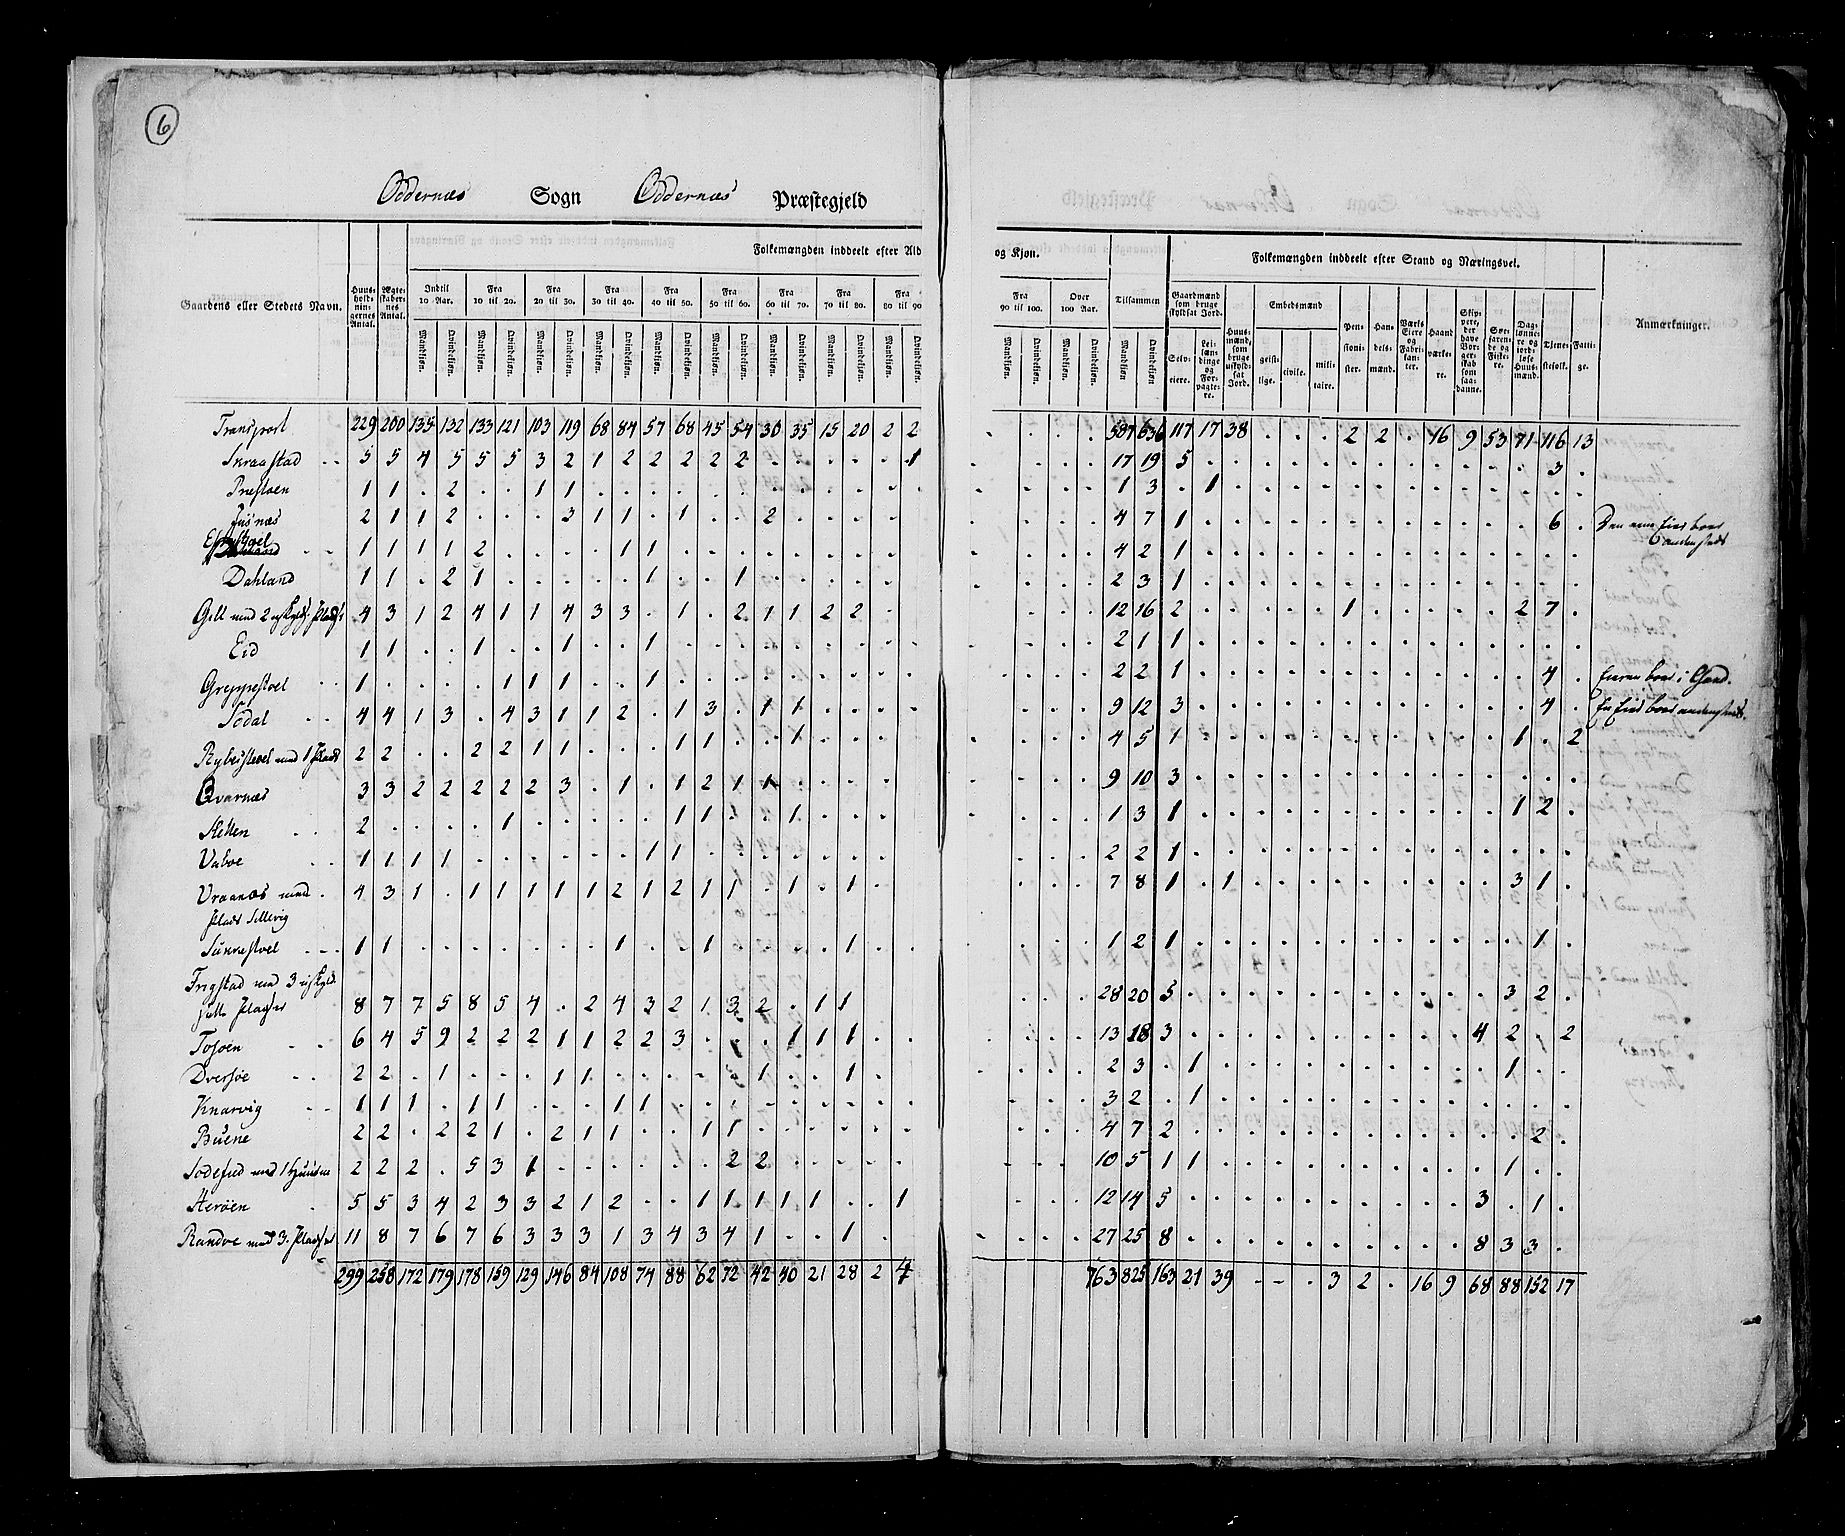 6
Oddernæs Sogn Oddernæs Præstegjeld
Folkemængden inddeelt efter Ald og Kjøn. Folkemængden inddeelt efter Stand og Næringsvei.
Gaardens eller Stedets Navn. Huusholdningernes Antal. Ægteskabernes Antal. Indtil 10 Aar. Fra 10 til 20. Fra 20 til 30. Fra 30 til 40. Fra 40 til 50. Fra 50 til 60. Fra 60 til 70. Fra 70 til 80. Fra 80 til 90 Fra 90 til 100. Over 100 Aar. Tilsammen Gaardmænd som bruge skyldsat Jord. Huusmænd, som bruge uskyldsat Jord. Embedsmænd Pensionister. Handelsmænd. Værks Eiere og Fabrikanter. Haandværkere. Skippere, der have Borgerskab som saadanne. Sørfarende og Fiskere. Daglønnere og jordløse Huusmænd. Tjenestefolk. Fattige. Anmærkninger.
Mandkjøn. Qvindekjøn. Mandkjøn. Qvindekjøn. Mandkjøn. Qvindekjøn. Mandkjøn. Qvindekjøn. Mandkjøn. Qvindekjøn. Mandkjøn. Qvindekjøn. Mandkjøn. Qvindekjøn. Mandkjøn. Qvindekjøn. Mandkjøn. Qvindekjøn. Mandkjøn. Qvindekjøn. Mandkjøn. Qvindekjøn. Mandkjøn. Qvindekjøn. Selveiere. Leilændinge og Forpagtere. geistlige. civile. militaire.
Transport 229 200 135 132 133 121 103 119 68 84 57 68 45 54 30 35 15 20 2 2 . . . . 587 636 117 17 38 . . . 2 2 . 16 9 53 71 116 13
Skraastad 5 5 4 5 5 5 3 2 1 2 2 2 2 2 . . . . . 1 17 19 5 3
Præstøen 1 1 . 2 . . 1 1 1 3 . 1
Jusnæs 2 1 1 2 . . . 3 1 1 . 1 . . 2 4 7 1 6 . Den eene Eier boer
andensteds
1 1 1 1 2 . . . . 1 1 4 2 1
Dahland 1 1 . 2 1 . . . . . 1 . . 1 2 3 1
Gill med 2 4 3 1 2 4 1 1 4 3 3 . 1 . 2 1 1 2 2 12 16 2 1 2 7
Eid 1 1 . . 1 . . 1 . . 1 2 1 1
Greppestøel 1 . . . . 1 1 1 . . 1 2 2 1 4 . Eieren boer i
Södal 4 4 1 3 . 4 3 1 1 2 . 1 3 . 1 1 9 12 3 4 . En Eier boer andensteds.
med 1 Plads 2 2 . . 2 2 1 1 . . . 1 1 . . 1 4 5 1 1 . 2
Qvarnæs 3 3 2 2 2 2 2 3 . 1 . 1 2 1 1 9 10 3
2 . . . . 1 . . . . . 1 1 . . 1 1 3 1 1 2
Vaboe 1 1 1 1 . . . . . . 1 1 2 2 1
Vraanæs med 4 3 1 . 1 1 1 1 1 2 1 2 1 1 . 1 . 1 7 8 1 . 1 3 1
Plads
1 1 . . . . . . . 1 . . 1 . . . . 1 1 2 1 1
Frigstad med 3
8 7 7 5 8 5 4 . 2 4 3 2 1 3 2 . 1 1 28 20 5 3 2
Tosøen 6 4 5 9 2 2 2 1 1 2 2 3 . . . 1 1 1 13 18 3 4 2 . 2
Dversøe 2 2 . 1 . . . 1 1 . . . . . 1 . . 1 2 3 . 1 1
Knarvig 1 1 1 . 1 1 . . . 1 1 3 2 . 1
Büene 2 2 . 2 2 1 . 2 1 1 . . 1 1 4 7 2 2
Sodefied med 1 2 2 2 . 5 3 1 . . . . . . 2 2 10 5 1 1 1
Herøen 5 5 3 4 2 3 3 2 1 2 . . 1 1 1 1 1 . . 1 12 14 5 3 . 1
Randøe med 3. 11 8 7 6 7 6 3 3 3 1 3 4 3 4 1 . . 1 27 25 8 8 3 3
299 258 172 179 178 159 129 146 84 108 74 88 62 72 42 40 21 28 2 4 763 825 163 21 39 - - . 3 2 . 16 9 68 88 152 17